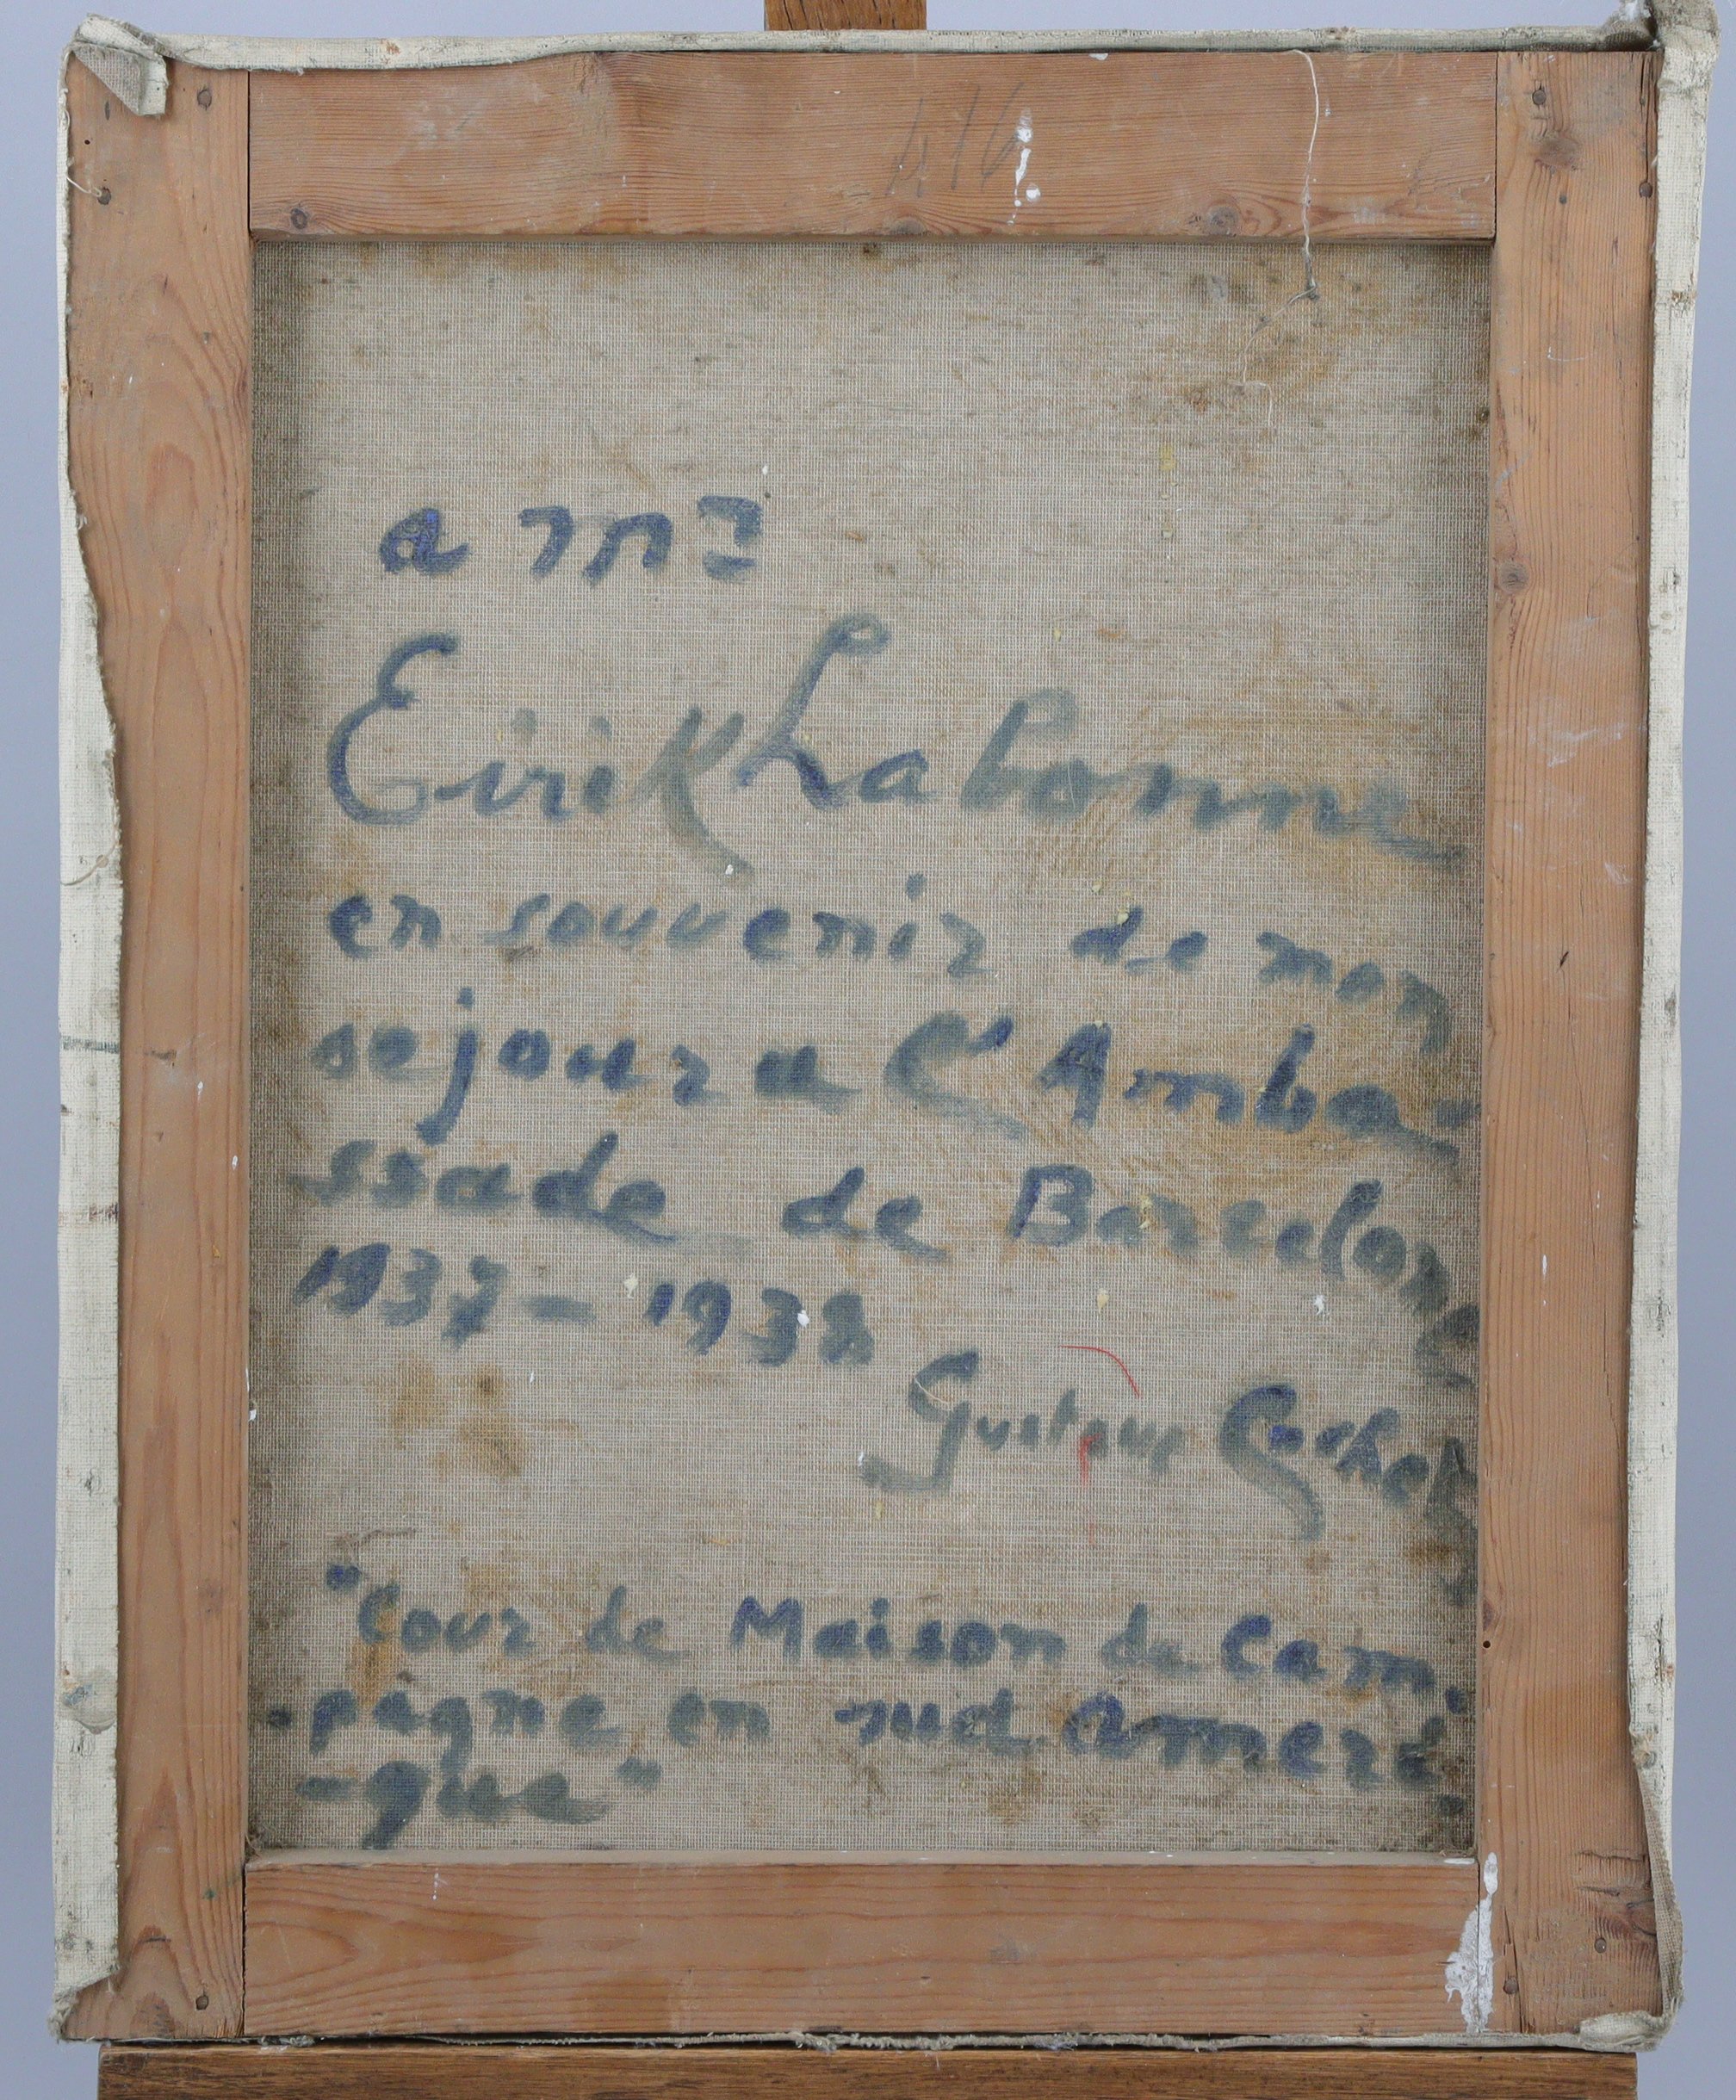 416
a mr
Eirik Labonne
en souvenir de mon
sejour a l'Amba-
ssade de Barcelone
1937 - 1938
Gustave Cochet
"Cour de Maison de Cam-
-pagne en sud ameri-
-que"